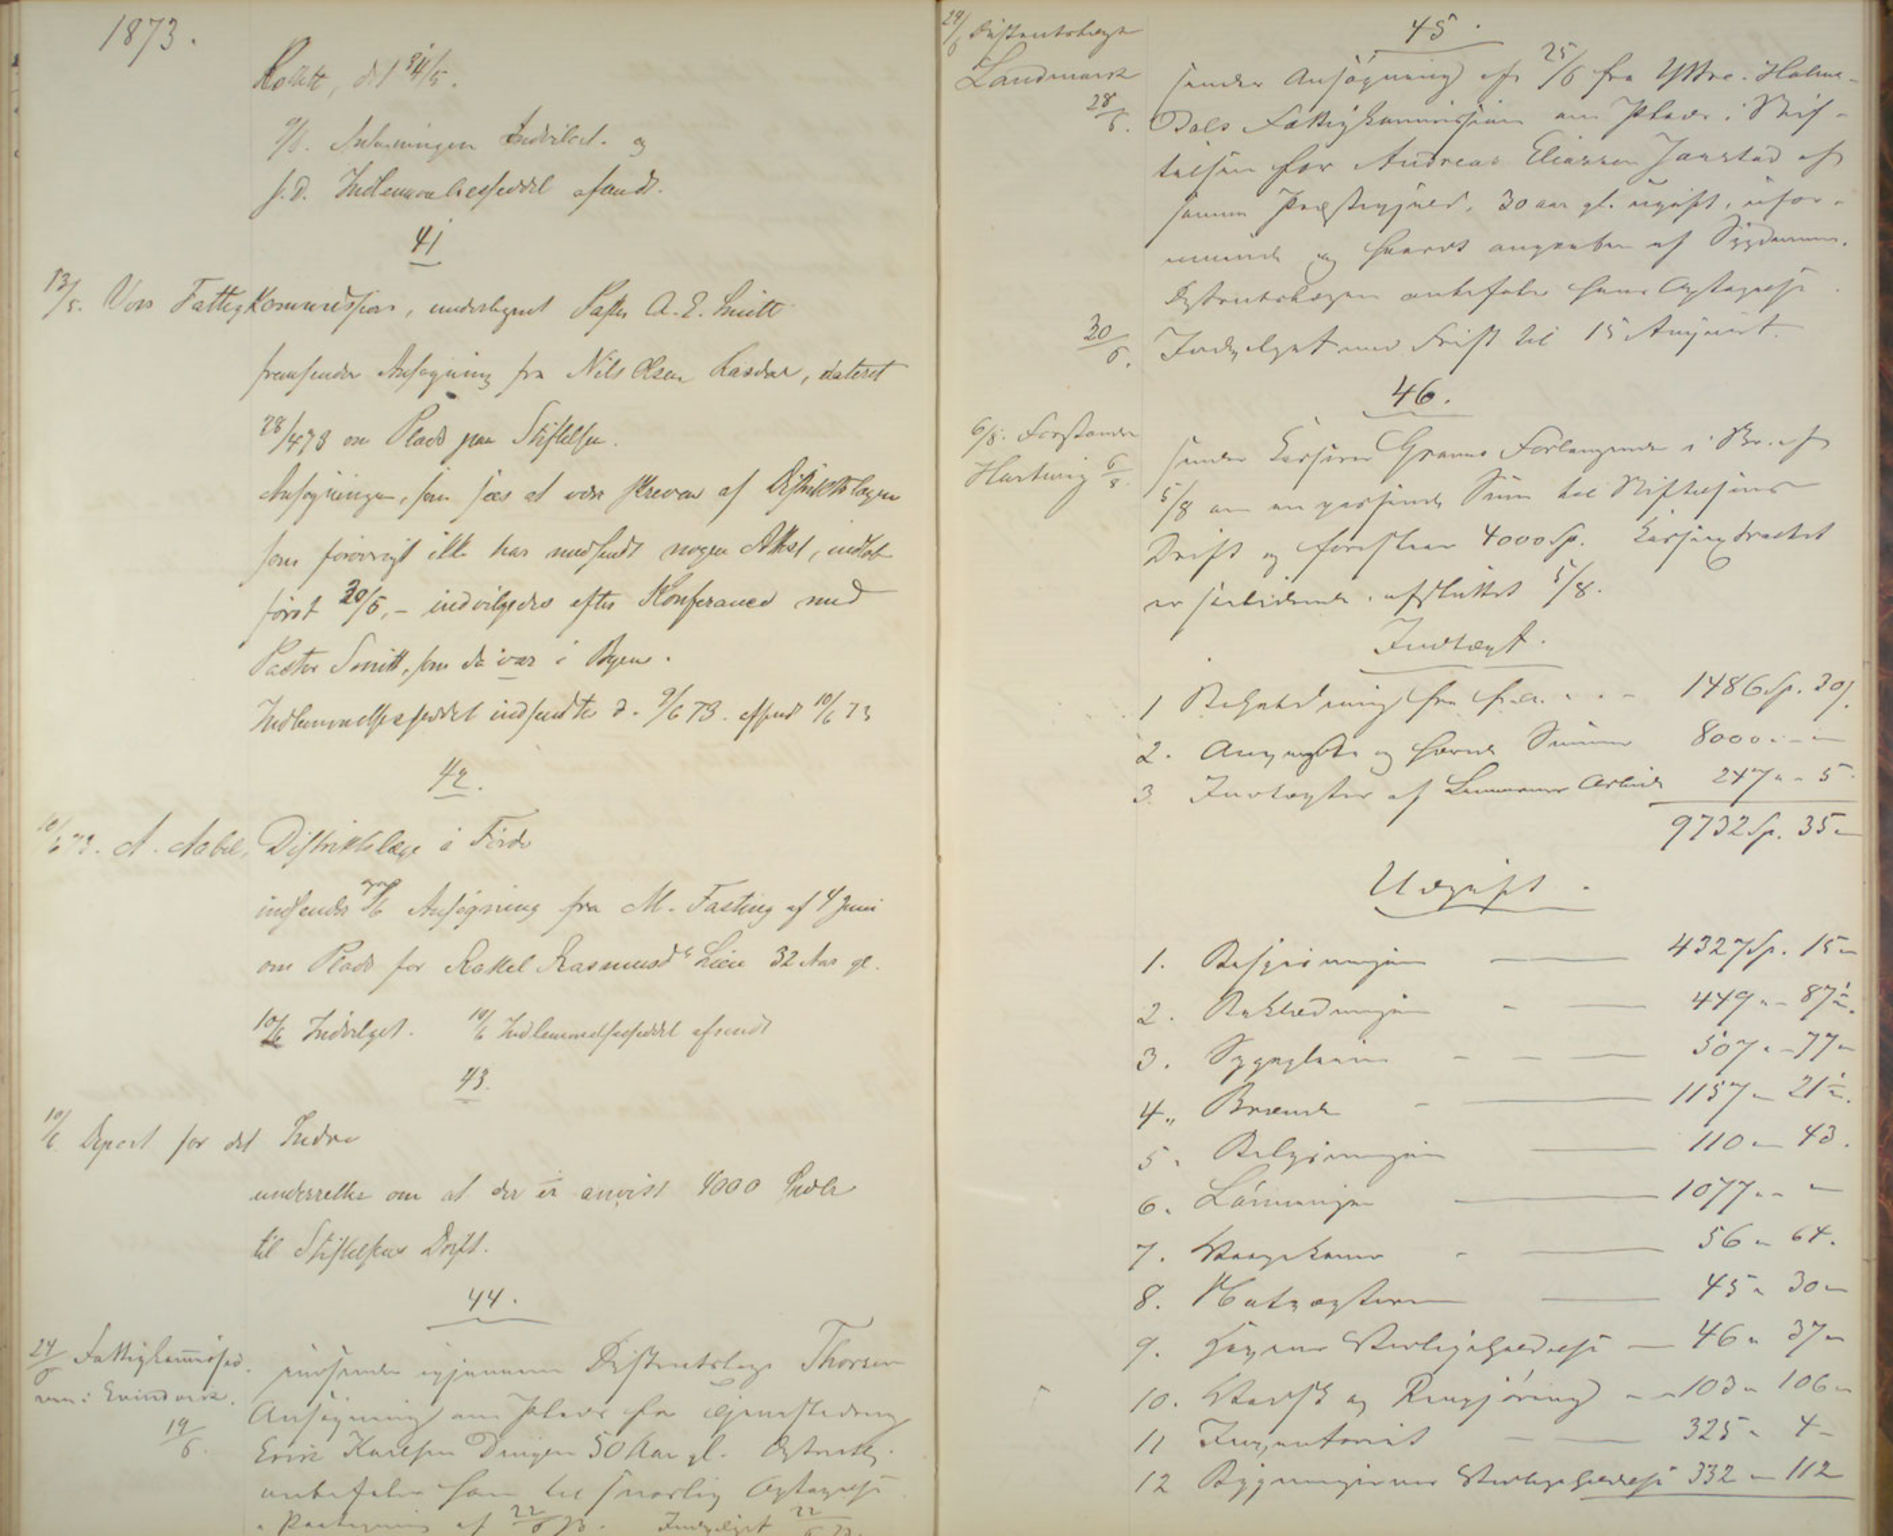 1873.
9/6. Ansøgningen Indvilget. og
s. D. Indlemmelsesseddel afsendt.
41
13/5. Vors Fattigkommission, undertegnet Pastor A. E. Smitt
fremsender Ansøgning fra Nils Olsen, dateret
28/4 73 om Plads paa Stiftelsen.
Ansøgningen, som sees at være skreven af Distriktslægen
som forøvrigt ikke har medsendt nogen Attest, indløb
først 30/5, – indvilgedes efter Konferance med
Pastor Smitt, som da var i Byen.
Indlemmelsesseddel indsendte d. 9/6 73. afsendt 10/6 73
42.
10/6 73. A. Aabel, Distriktslæge i Førde
indsender Ansøgning fra M. Fasting af 4 Juni
om Plads for Rakkel Rasmusdr Lien 32 Aar gl.
10/6 Indvilget. 10/6 Indlemmelsesseddel afsendt
43.
10/6 Depart for det Indre
underretter om at der er anvist 4000 Spdlr
til Stiftelsens Drift.
44.
24/6 Fattigkommissio-
nen i Evindvik.
19/6.
indsender igjennem Distriktslæge Thorsen
Ansøgning om Plads for
Erik Karlsen 50 Aar gl. Distriktsl.
anbefaler ham til snarlig Optagelse
Paategning af 22/6 73. Indvilget 22/6 73.
29/6 Distriktslæge
Landmark
28/6.
45.
sender Ansøgning af 25/6 fra Yttre Holme-
dals Fattigkommission om Plads i Stif-
telsen for Andreas Eliassen Jarstad af
samme Præstegjeld, 30 aar gl. ugift, ufor-
muende og haardt angreben af Sygdommen.
Distriktslægen anbefaler hans Optagelse.
30/6. Indvilget med Frist til 15 August.
46.
6/8. Forstander
Hartwig 6/8.
sender Kasserer Grams Forlangende i Br. af
5/8 om en passende Sum til Stiftelsens
Drift og foreslaar 4000 Sp. Kasseextractet
er saalydende: afsluttet 5/8.
Indtægt.
1 Beholdning fra f. a. . . . – 1486 Sp. 30 s.
2. Anviste og hævede Summer 8000 " – "
3. Indtægter af Lemmernes Arbeide 247 " – 5
9732 Sp. 35 "
Udgift.
1. Bespisningen — 4327 Sp. 15 "
2. Beklædningen – — 449 " – 87½.
3. Sygepleien – – — 507 " – 77 "
4. Brænde – — 1157 " 21½.
5. Belysningen — 110 " 43.
6. Lønninger — 1077 " – "
7. – — 56 " 64.
8. — 45 " 30 "
9. Havens Vedligeholdelse — 46 " 37 "
10. Vadsk og Rengjøring – – 103 " 106 "
11 Inventariet – — 325 " 4 –
12 Bygningernes Vedligeholdelse 332 " 112